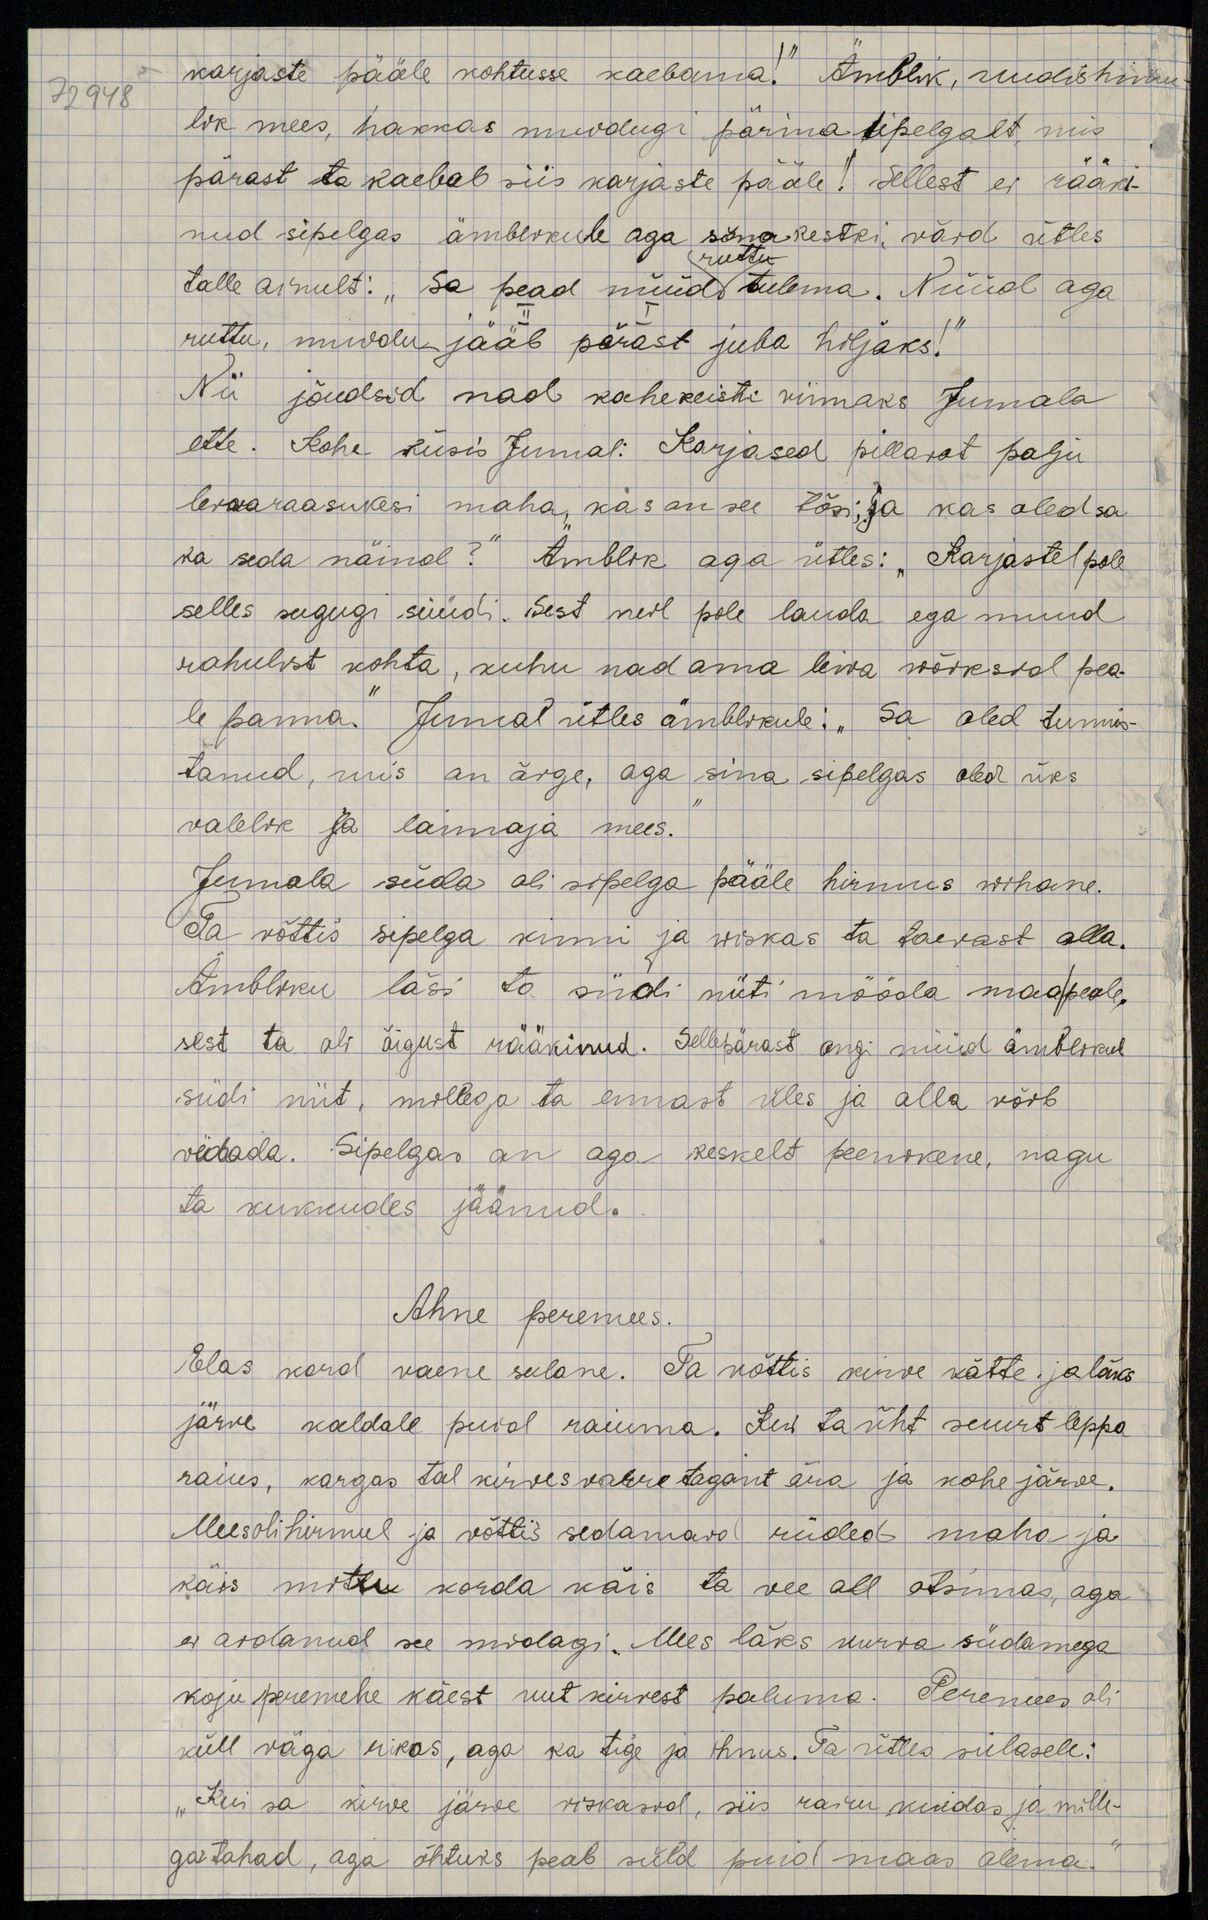 72948
karjaste pääle kohtusse kaebama!" Ämblik, uudishimu-
lik mees, hakkas muidugi pärima sipelgalt, mis
pärast ta kaebab siis karjaste pääle! Sellest ei rääki-
nud sipelgas ämblikule aga sõnakestki, vaid ütles
ruttu
talle ainult: „Sa pead nüüd tulema. Nüüd aga
II I
ruttu, muidu jääb pärast juba hiljaks!"
Nii jõudsid nad kahekeisti viimaks Jumala
ette. Kohe küsis Jumal: Karjased pillavat palju
leivaraasukesi maha, „kas on see tõsi, ja kas oled sa
ka seda näind?" Ämblik aga ütles: „Karjastel pole
selles sugugi süüdi. Sest neil pole lauda ega muud
rahulist kohta, kuhu nad oma leiva wõiksid pea-
le panna." Jumal ütles ämblikule: „Sa oled tunnis-
tanud, mis on õige, aga sina sipelgas oled üks
valelik ja laimaja mees."
Jumala süda oli sipelga pääle hirmus wihane.
Ta võttis sipelga kinni ja wiskas ta taevast alla.
Ämbliku lasi ta siidi niiti mööda maa peale,
sest ta oli õigust rääkinud. Sellepärast ongi nüüd ämblikul
siidi niit, millega ta ennast üles ja alla võib
vedada. Sipelgas on aga keskelt peenikene, nagu
ta kukkudes jäänud.
Ahne peremees.
Elas kord vaene sulane. Ta võttis kirve kätte ja läks
järve kaldale puid raiuma. Kui ta üht suurt leppa
raius, kargas tal kirves varre tagant ära ja kohe järve.
Mees oli hirmul ja võttis sedamaid riided maha ja
käis mitu korda käis ta vee all otsimas, aga
ei aidanud see midagi. Mees läks kurva südamega
koju peremehe käest uut kirvest paluma. Peremees oli
küll väga rikas, aga ka tige ja ihnus. Ta ütles sulasele:
„Kui sa kirve järve viskasid, siis raiu kuidas ja mille-
ga tahad, aga õhtuks peab süld puid maas olema."